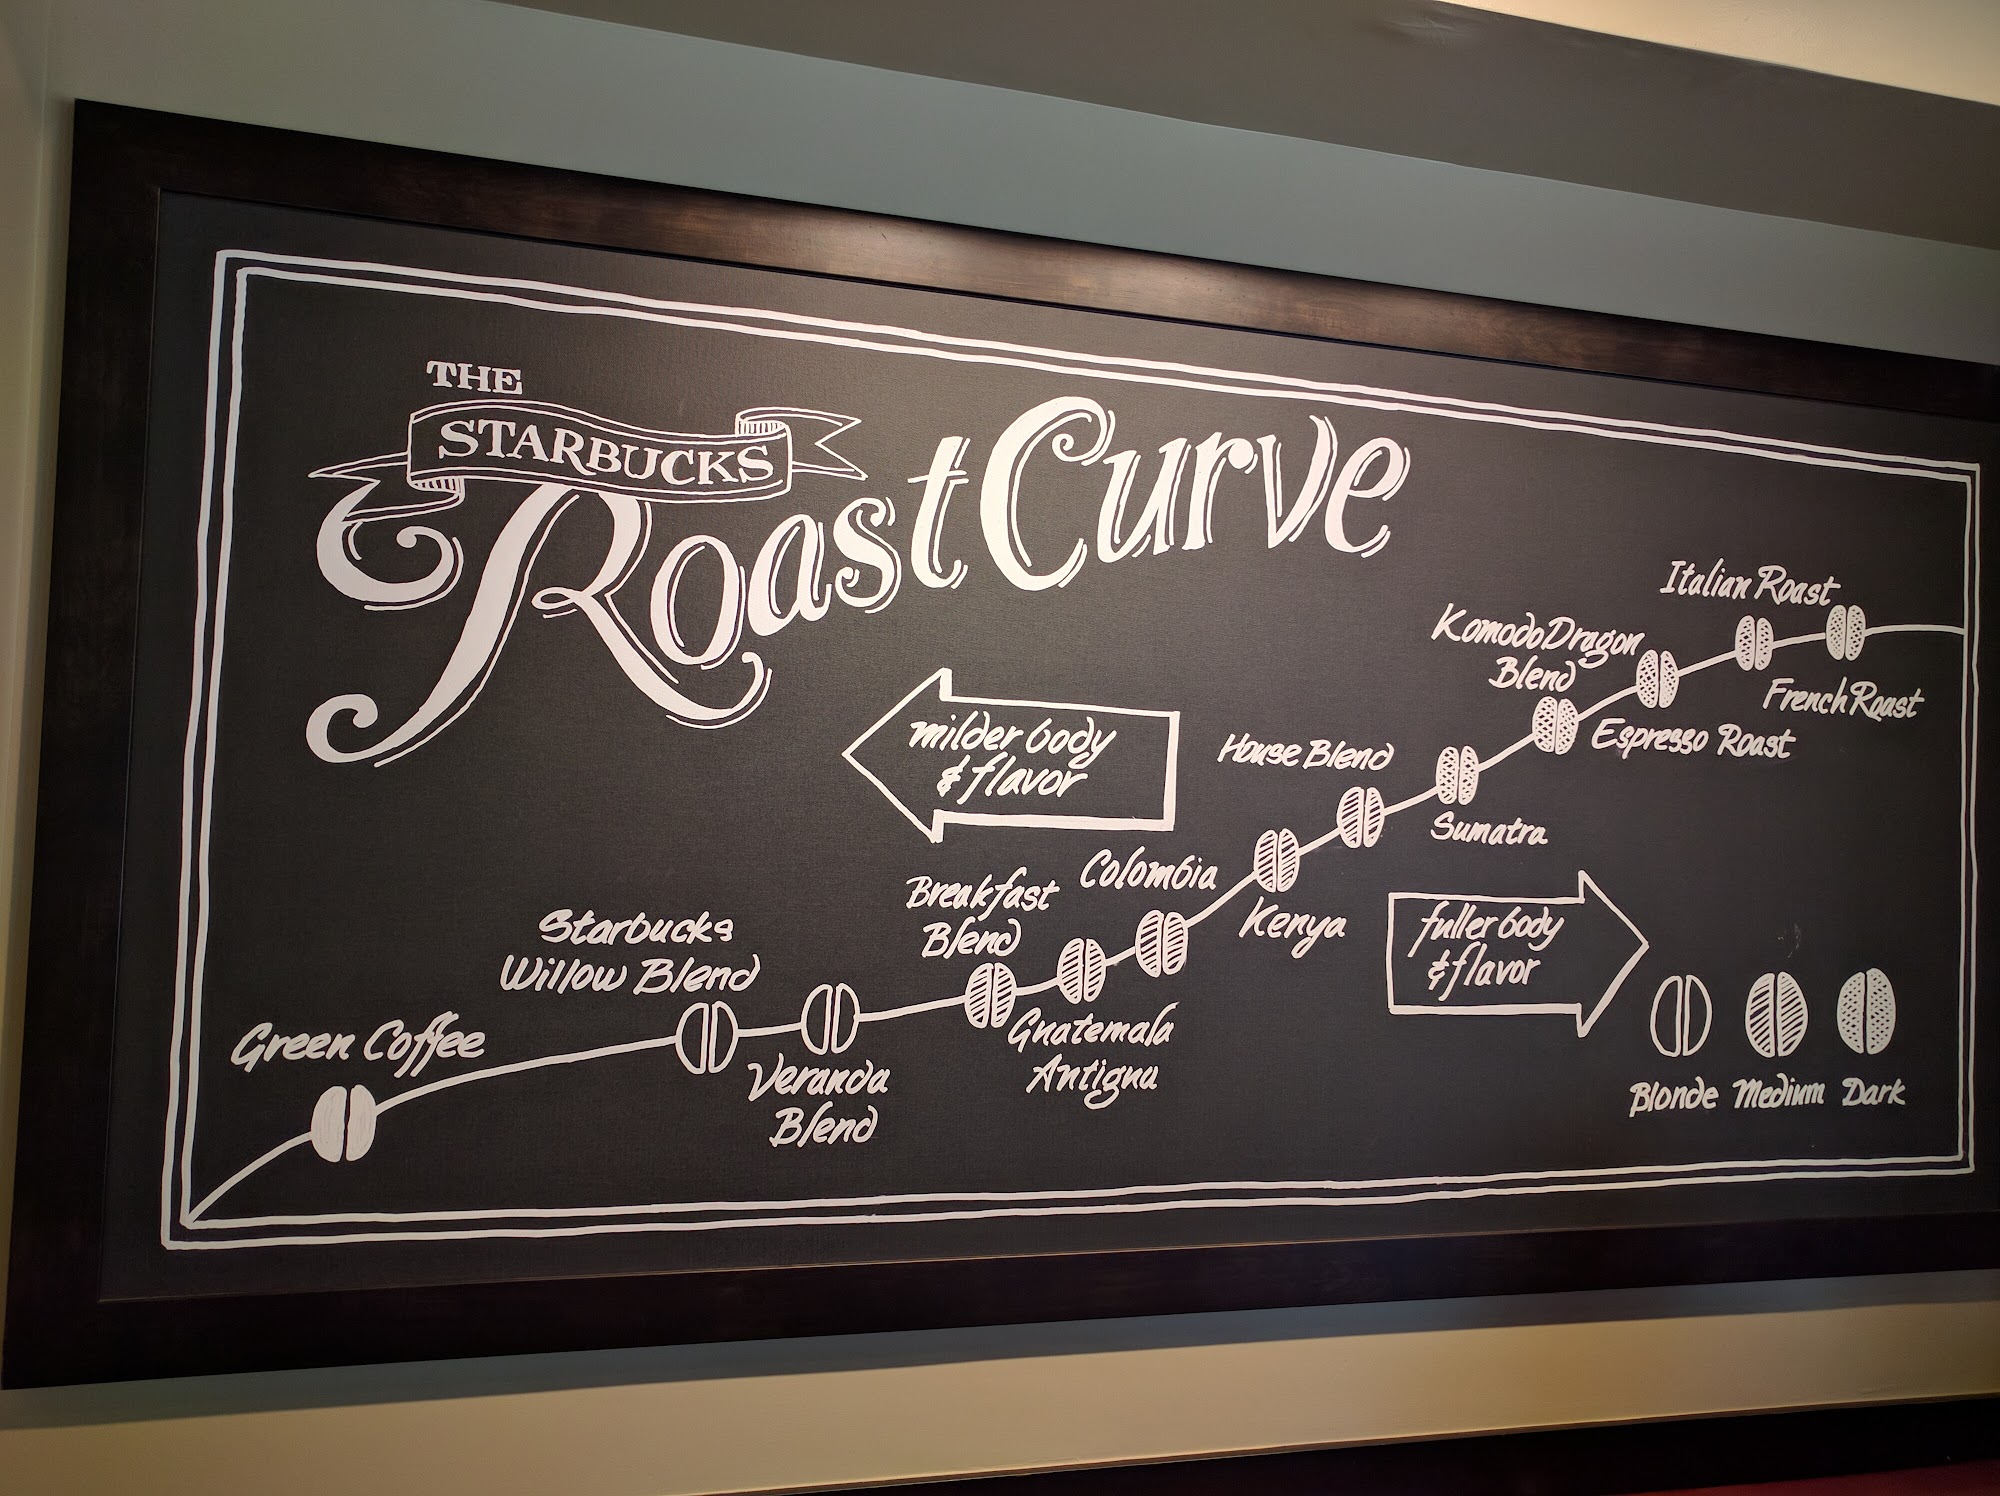 THE
STARBUCKS
Roast Curve
Italian Roast
Komodo Dragon
Blend
French Roast
Espresso Roast
milder body
& flavor
House Blend
Sumatra
Colombia
Breakfast
Blend
Kenya
fuller body
& flavor
Starbucks
Willow Blend
Guatemala
Antigua
Green Coffee
Veranda
Blend
Blonde Medium Dark